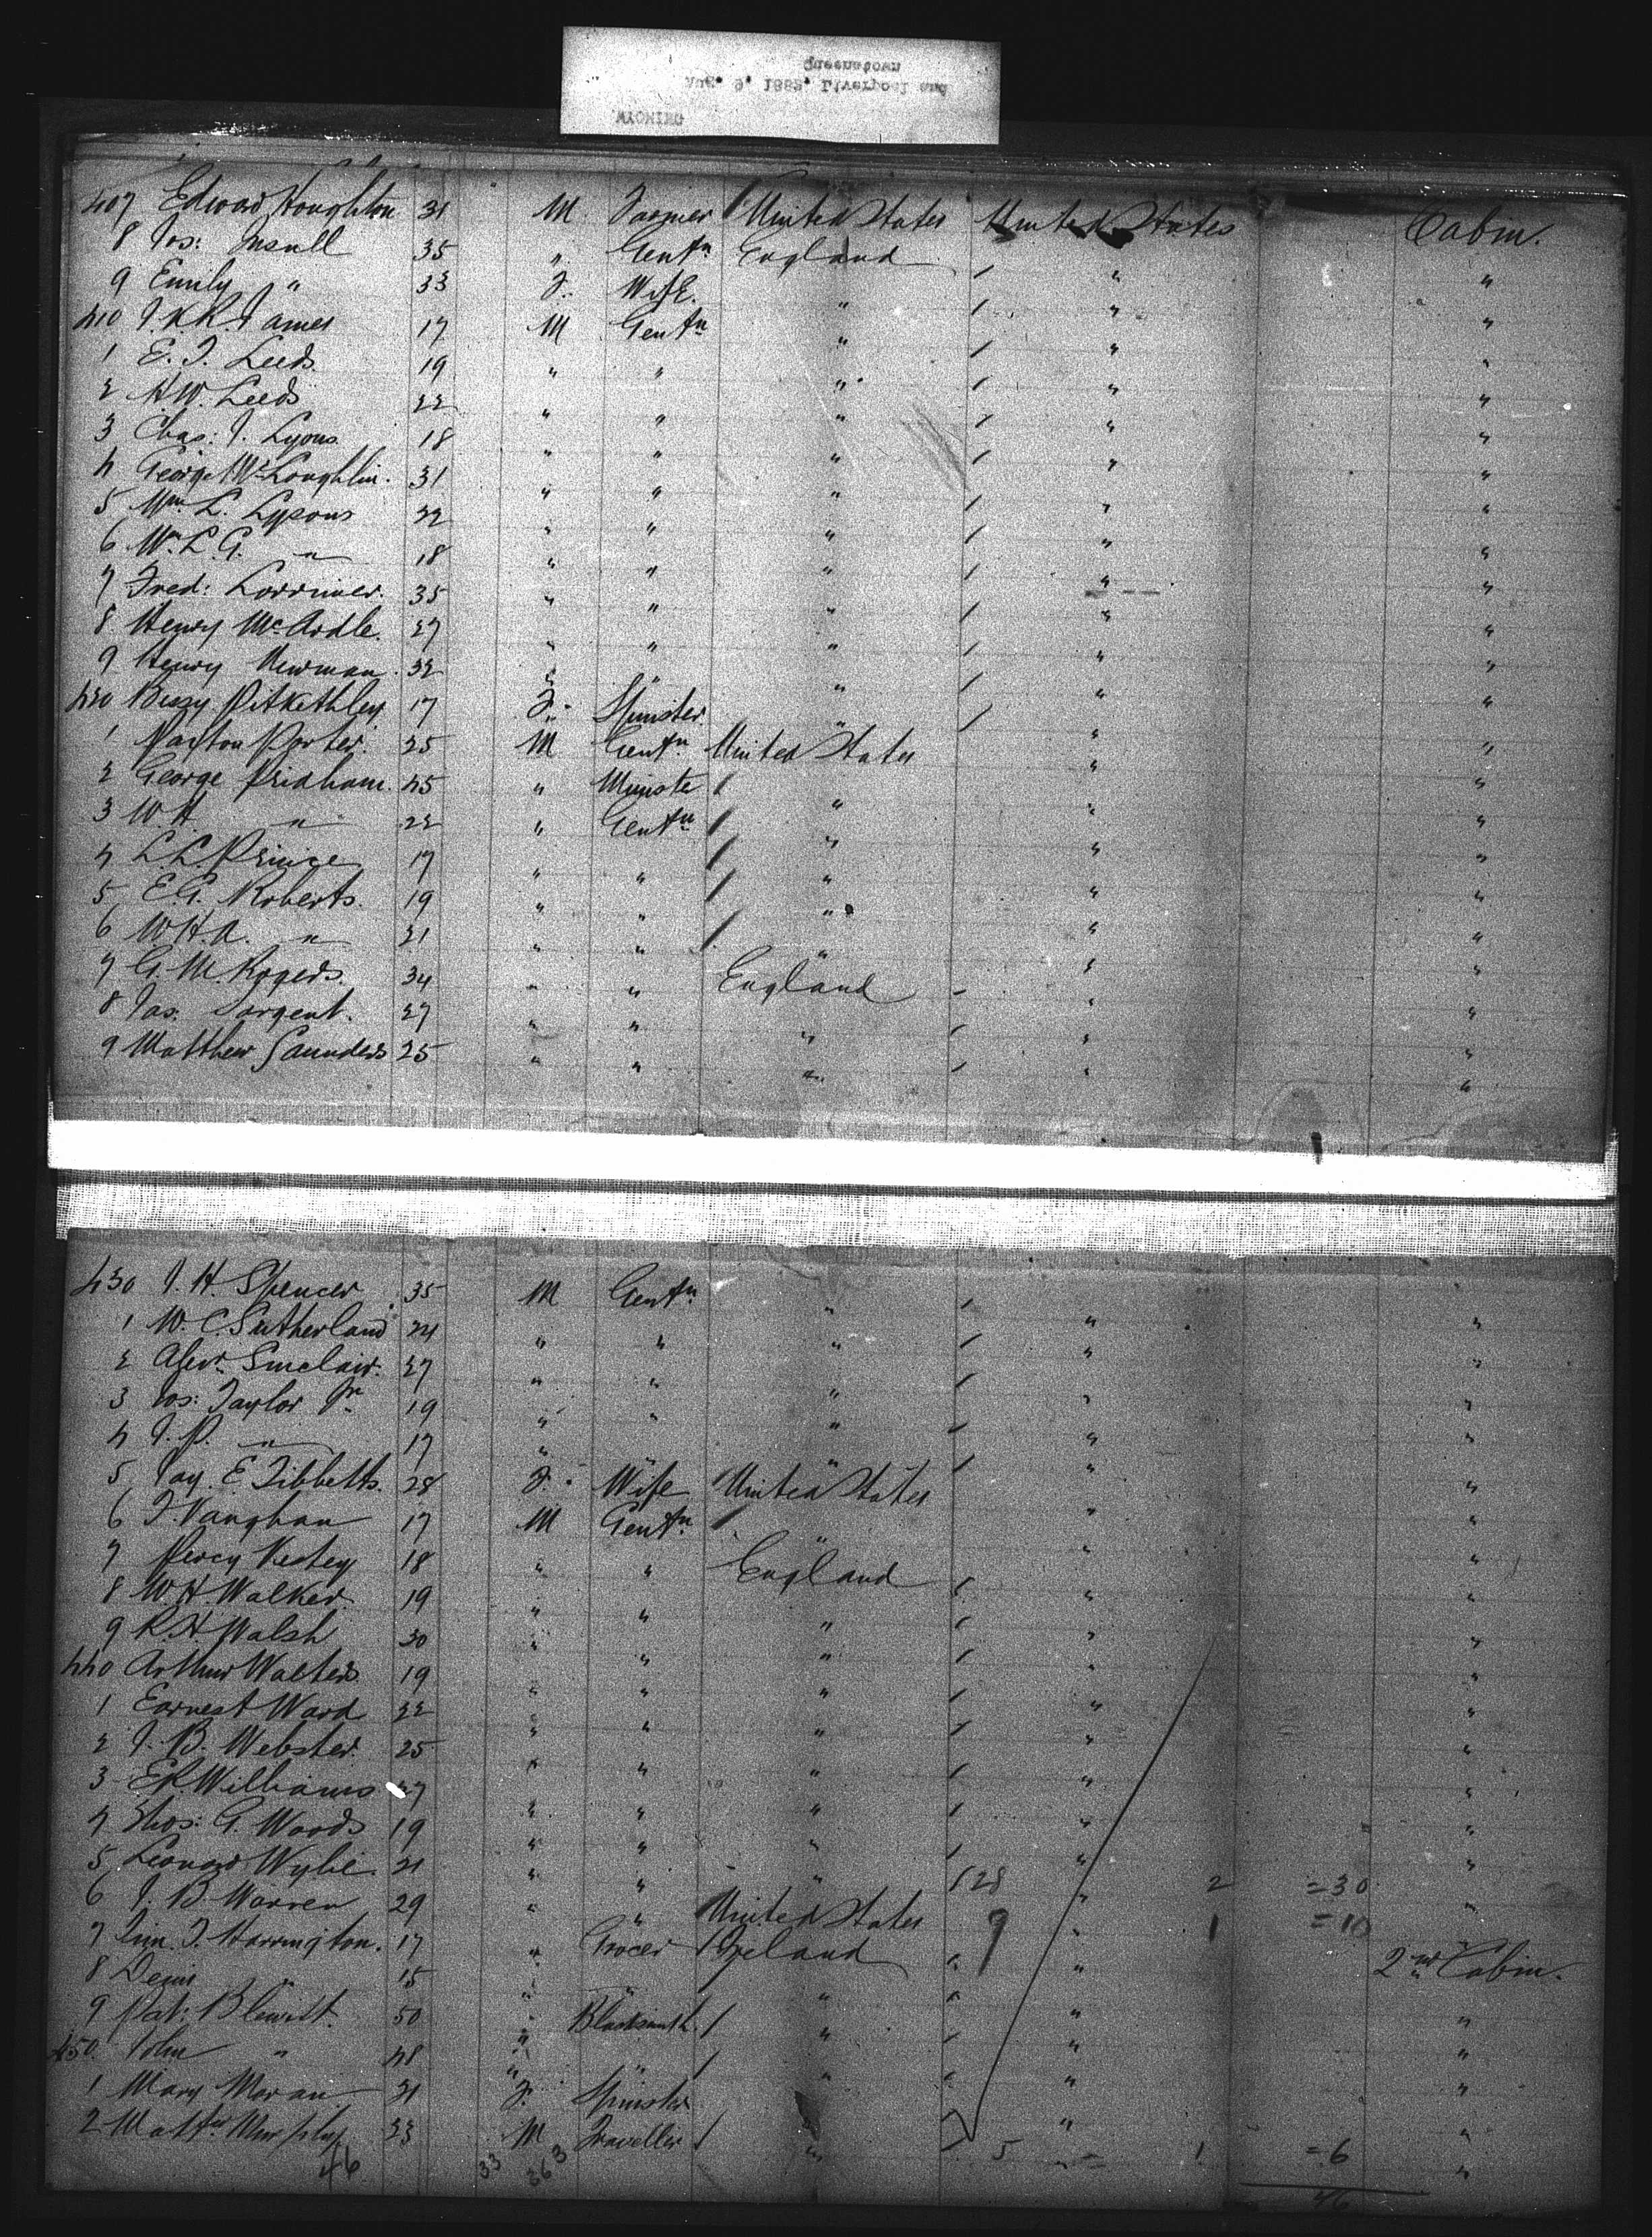 WYOMING
Aug. 9, 1882. Liverpool and
Queenstown
407 Edward Houghton 31 M. Farmer United States United States Cabin.
8 Jos: Insull 35 " Gentn England / " "
9 Emily " 33 F. Wife. " / " "
410 J.K.R. James 17 M Gentn " / " "
1 E. J. Leeds. 19 " " " / " "
2 H.W. Leeds 22 " " " / " "
3 Chas: J. Lyons 18 " " " / " "
4 George McLoughlin. 31 " " " / " "
5 Wm. L. Lysons 22 " " " / " "
6 Wm. L. G. " 18 " " " / " "
7 Fred: Lorrimer. 35 " " " / " "
8 Henry McArdle. 27 " " " / " "
9 Henry Newman. 32 " " " / " "
420 Bessy Pitkethley 17 F. Spinster. " / " "
1 Paxton Porter. 25 M Gentn United States " "
2 George Pridham. 45 " Ministe / " " "
3 W H. " 22 " Gentn / " " "
4 L.L. Prince 17 " " / " " "
5 E.G. Roberts. 19 " " / " " "
6 W.H.A. " 21 " " / " " "
7 G. M. Rogers. 34 " " England - " "
8 Jas. Sargent. 27 " " " / " "
9 Matthew Saunders 25 " " " / " "
430 J. H. Spencer 35 M Gentn " / " "
1 W. C. Sutherland 24 " " " / " "
2 Alexr. Sinclair. 27 " " " / " "
3 Jos: Taylor Jr. 19 " " " / " "
4 J. P. " 17 " " " / " "
5 Jay. E. Tibbetts. 28 F. Wife United States " "
6 J. Vaughan 17 M Gentn / " " "
7 Percy Vestey 18 " " England / " "
8 W. H. Walker. 19 " " " / " "
9 R. H. Walsh 30 " " " / " "
440 Arthur Walters 19 " " " / " "
1 Earnest Ward 22 " " " / " "
2 J. B. Webster. 25 " " " / " "
3 E.R. Williams 27 " " " / " "
4 Thos: G. Woods 19 " " " / " "
5 Leonard Wylie. 21 " " " / 28 " 2 = 30 "
6 J. B. Warren 29 " " United States 9 " 1 = 10 "
7 Jim. J. Harrington. 17 " Grocer / Ireland " " 2nd Cabin.
8 Denis " 15 " " " " " "
9 Pat: Blewitt. 50 " Blacksmith. / " / " "
450. John " 48 " " / " " " "
1 Mary Moran 21 F. Spinster " "
2 Mattw Murphy 23 M Traveller / " / 5 " 1 = 6 "
46 33 363 46